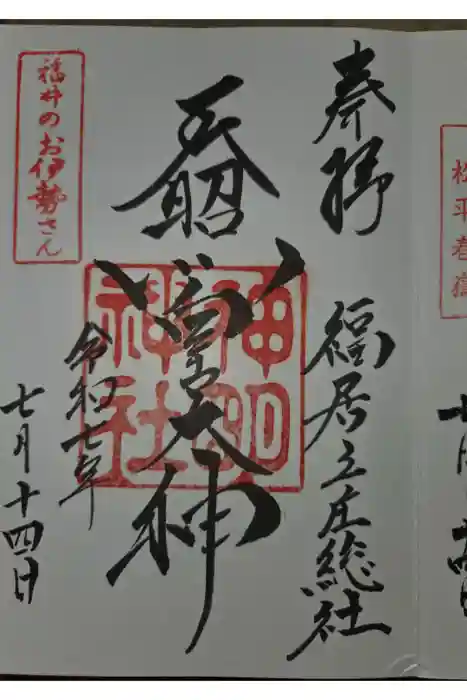 松平春嶽
奉拝
福居立庄総社
天照皇大神
神明神社
令和七年
七月十四日
福井のお伊勢さん